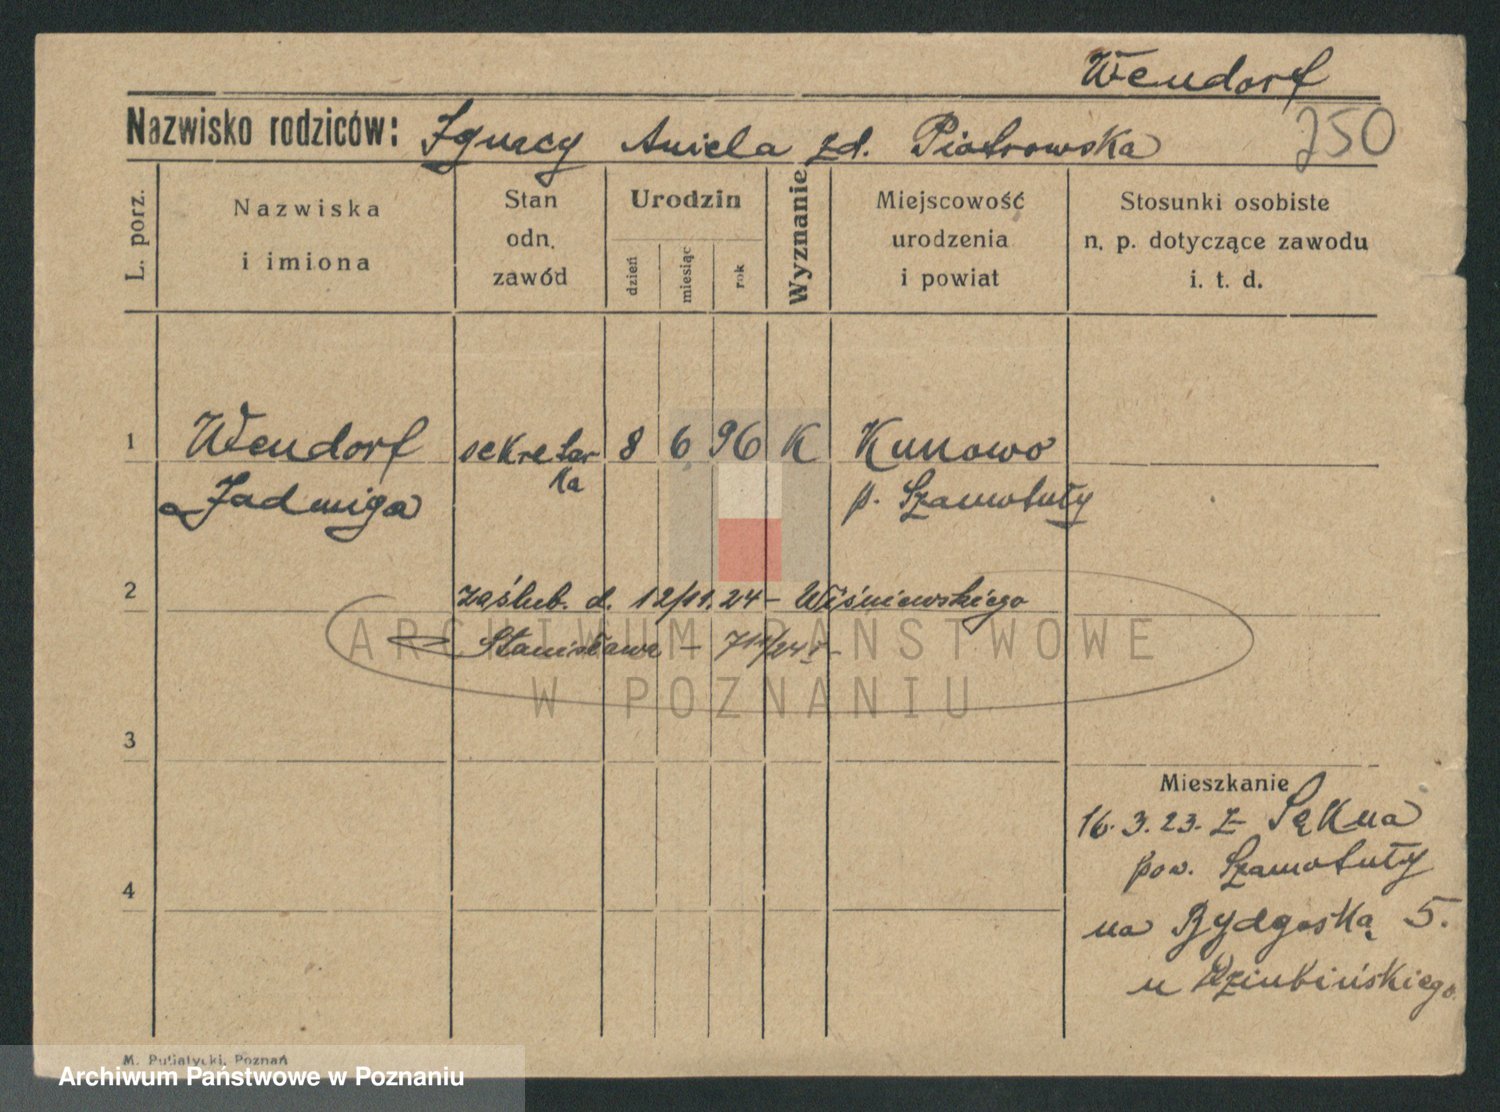 Wendorf
Nazwisko rodziców: Ignacy Aniela zd. Piotrowska
250
L. porz.
Nazwiska
i imiona
Stan
odn.
zawód
Urodzin
dzień
miesiąc
rok
Wyznanie
Miejscowość
urodzenia
i powiat
Stosunki osobiste
n. p. dotyczące zawodu
i. t. d.
1
Wendorf
Jadwiga
sekretar
ka
8 6 96 K
Kunowo
p. Szamotuły
2
zaślub. d. 12/11. 24 – Wiśniewskiego
Stanisława –
ARCHIWUM PAŃSTWOWE
W POZNANIU
3
Mieszkanie
16. 3. 23. z Sękna
pow. Szamotuły
na Bydgoską 5.
u Dziubińskiego
4
M. Putiatycki, Poznań
Archiwum Państwowe w Poznaniu